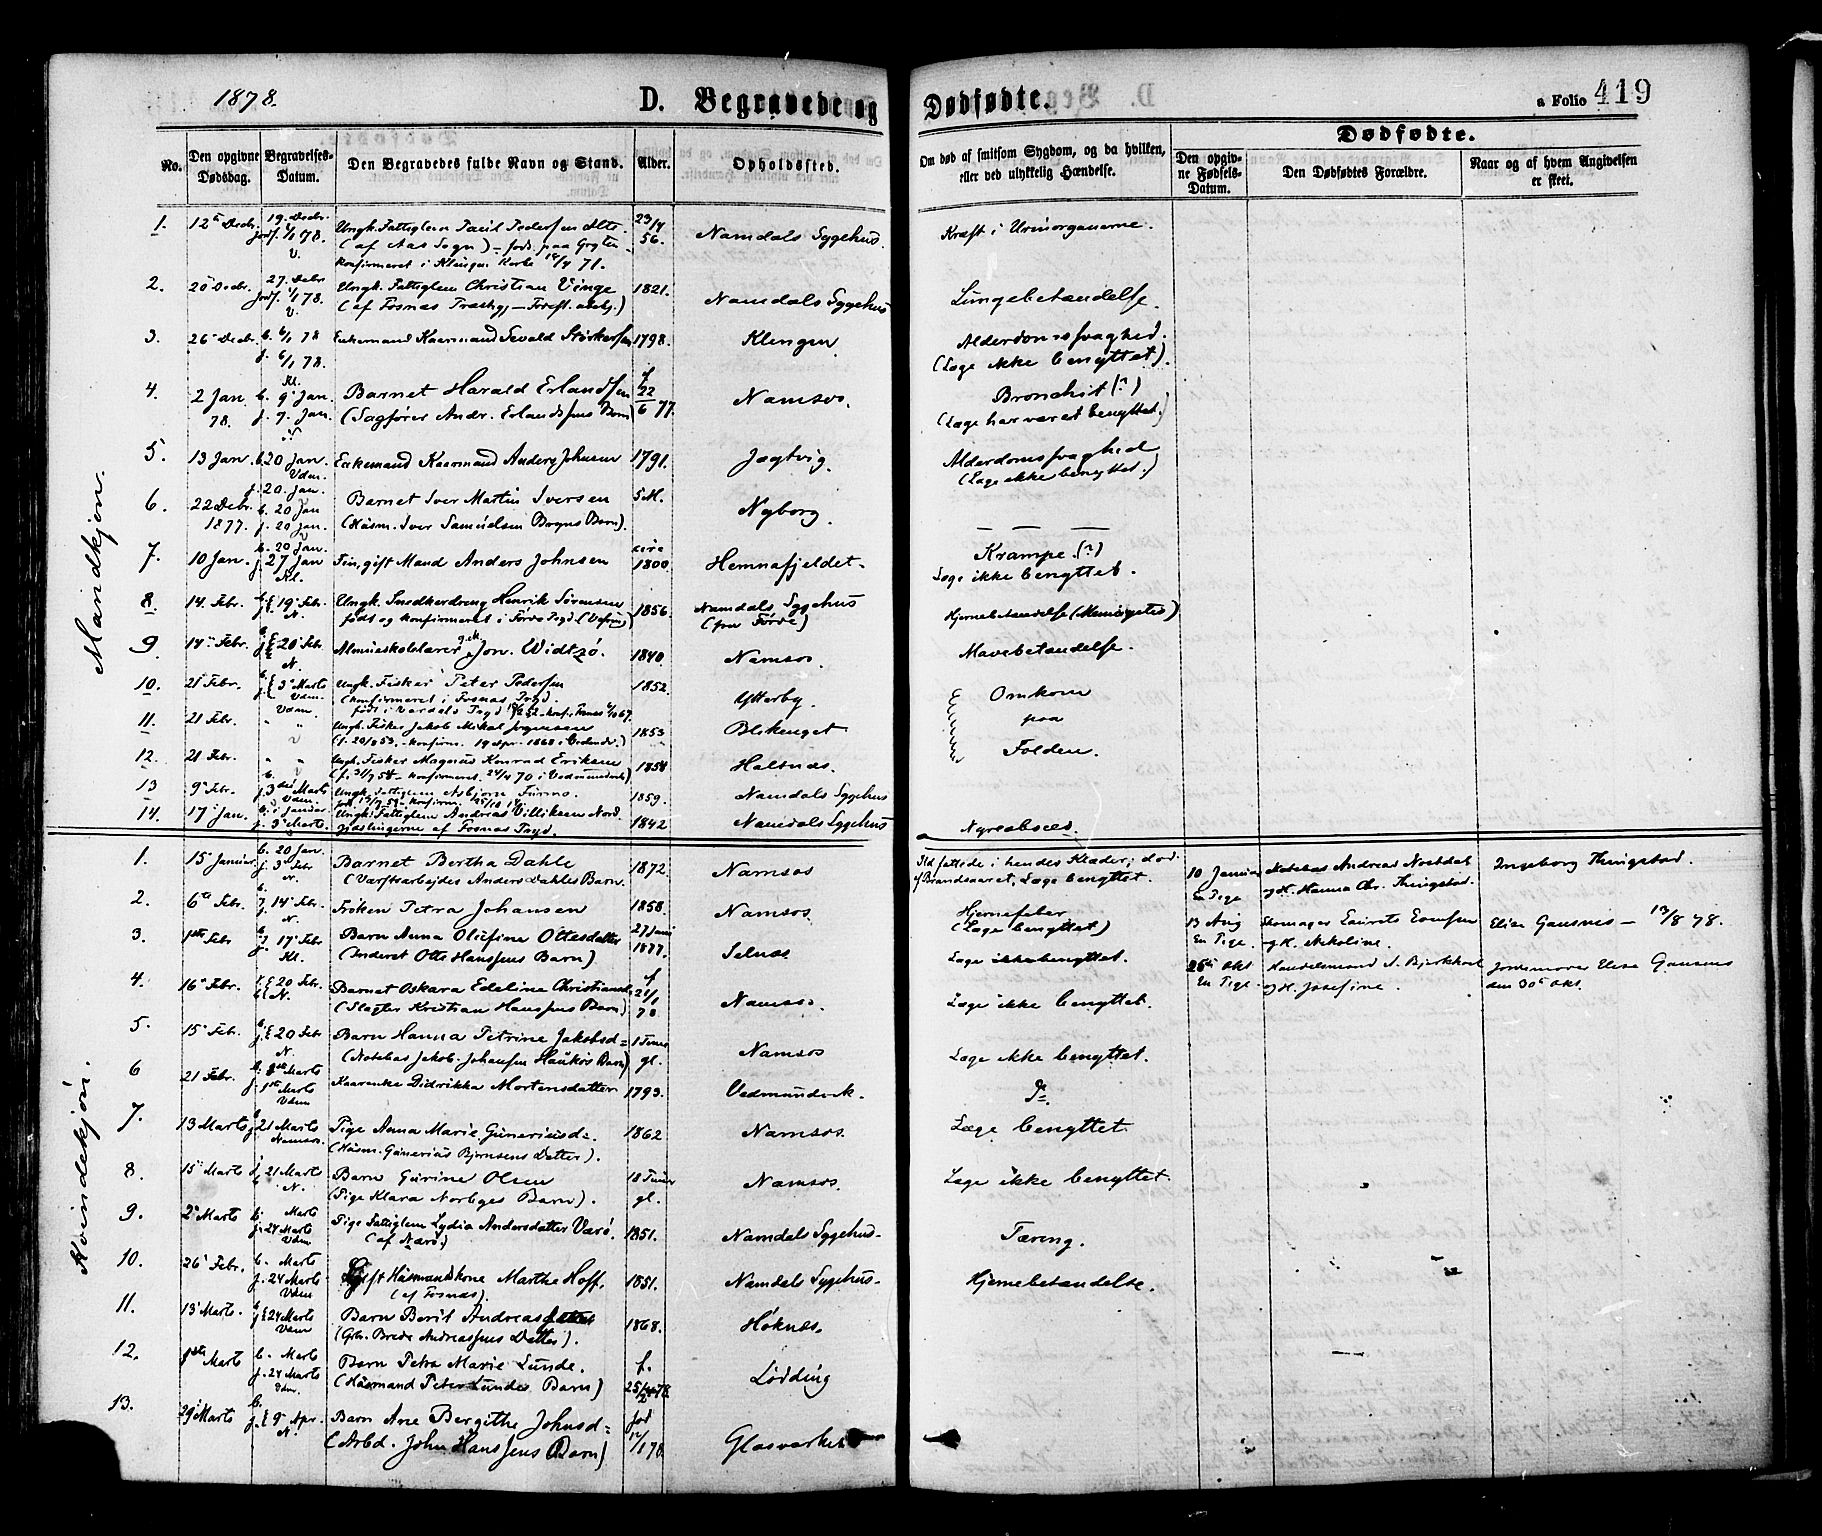 1878.
D. Begravede og Dødfødte.
a Folio 419
No.
Den opgivne Dødsdag.
Begravelses-Datum.
Den Begravedes fulde Navn og Stand.
Alder.
Opholdssted.
Om død af smitsom Sygdom, og da hvilken, eller ved ulykkelig Hændelse.
Dødfødte.
Den opgivne Fødsels-Datum.
Den Dødfødtes Forældre.
Naar og af hvem Angivelsen er skeet.
Mandkjøn.
1. 12te Decbr. 19. Decbr. jordf. 1/1 78. V. Ungk. Fattiglem Paul Pedersen 23/4 56. Namdals Sygehus. Kræft i Urinorganerne.
(af Aas Sogn) - født paa
konfirmeret i Klingen Kirke 71.
2. 20 Decbr. 27. Decbr. jordf. 1/1 78. V. Ungk. Fattiglem Christian Vinge 1821. Namdals Sygehus Lungebetændelse.
(af Fosnas
3. 26 Decbr. b. 6/1 78 j. 6/1 78. Kl. Enkemand Kaarmand Sevald Størkersen 1798. Klengen Alderdomssvaghed.
(Læge ikke benyttet).
4. 2 Jan. 78. b. 9 Jan. j. 9. Jan. Barnet Harald Erlandsen f. 22/6 77. Namsos. Bronchit (?)
(Sagfører Andr. Erlandsens Barn) (Læge har været benyttet.)
5. 13 Jan. b. 20 Jan. Vdm. j. 20. Jan. Enkemand Kaarmand Anders Johnsen 1791. Jøgtvig. Alderdomssvaghed
(Læge ikke benyttet.)
6. 22 Debr. 1877. b. 20 Jan j. 20 Jan. Barnet Iver Martin Iversen 5 M. Nyborg.
(Husm. Iver Samuelsen Bogns Barn).
7. 10 Jan. b. 20 Jan. j. 27 Jan Kl. Fin, gift Mand Anders Johnsen circa 1800 Hemnafjeldet. Krampe. (?)
Læge ikke benyttet.
8. 14. Febr. 19 Febr. N. Ungk. Snedkerdreng Henrik Sørensen 1856. Namdals Sygehus Hjernebetændelse
født og konfirmeret i
9 14 Febr. 20 Febr. N. Almueskolelærer Jon. Widtsø. 1840. Namsos. Mavebetændelse.
10. 21 Febr. 3 Marts Vdm. Ungk. Fisker Peter Pedersen 1852. Ytterby Omkom
(konfirmeret i Fosnas
11. 21 Febr. " " Ungk. Fisker Jakob Mikal 1853 Blikenget paa
12. 21 Febr. " " Ungk. Fisker Magnus Konrad Eriksen 1854 Halsnæs. Folden.
13 9 Febr. 3die Marts Vdm. Ungk. Fattiglem Asbjørn 1859. Namdals Sygehus
14. 17 Jan. j. 3 Marts. Ungk. Fattiglem Andreas Villiksen 1842 Namdals Sygehus Nyreabsces.
af Fosnas
Kvindekjøn.
1. 15 Januar b. 20 Jan. j. 3 Febr N. Barnet Bertha Dahle 1872. Namsos Ild fattede i hendes Klæder; død
(Værftsarbejder Anders Dahles Barn. af Brandsaaret, Læge benyttet.
10 Januar En Pige Notebas Andreas Nostdal og H. Hanna Chr. Thingstad. Ingeborg Thingstad.
2. 6te Febr. 14 Febr. N. Frøken Petra Johansen 1858. Namsos. Hjernefeber
(Læge benyttet)
13 Aug En Pige. Skomager Laurits og H. Nikoline. Elise Gausnes - 13/8 78.
3. 1ste Febr 17 Febr Kl. Barn Anna Olufine Ottesdatter 27 Juni 1877. Selnæs. Læge ikke benyttet.
(Inderst Otto Hanssens Barn)
25 Okt En Pige Handelsmand og H. Josefine. Jordemoder Elise Gausens den 30te Okt.
4. 16 Febr. 20 Febr. N. Barnet Oskara Edeline Christiansd. f 21/1 78 Namsos. Læge ikke benyttet.
(Slagter Kristian Hanssens Barn)
5. 15 Febr. 20 Febr N. Barn Hanna Petrine Jakobsd= 1 Time gl. Namsos Læge ikke benyttet.
(Notebas Jakob Johansen Haukøs Barn)
6 21 Febr. 1ste Marts Vdm Kaarenke Didrikka Mortensdatter 1793. Vedmundvik. Do.
7. 13 Marts 21 Marts Namsos. Pige Anna Marie Guneriusd=. 1862 Namsos. Læge benyttet.
(Husm. Gunerius Bjørnsens Datter).
8. 15 Marts 21 Marts N. Barn Gurine Olsen 18 Timer gl. Namsos. Læge ikke benyttet.
(Pige Klara Norbyes Barn).
9. 2 Marts b. Marts j. 24 Marts Vdm Pige Fattiglem Lydia Andersdatter Varø. 1851. Namdals Sygehus. Tæring.
(af Nærø.)
10. 26 Febr. b. Marts j. 24 Marts Vdm Gift Husmandskone Marthe Hoff. 1851. Namdals Sygehus. Hjernebetændelse.
(af Fosnæs).
11. 13 Marts. 24 Marts Vdm Barn Berit Andreas 1868. Høknæs.
(Grb. Brede Andreassens Datter).
12. 1ste Marts b. Marts j. 24 Marts Vdm. Barn Petra Marie Lunde. f. 25/2 78. Lødding
(Husmand Peter Lundes Barn)
13. 29 Marts b. j. 9 Apr. N. Barn Ane Bergithe Johnsd= fød 12/1 78. Glasværket
(Arbd. John Hanssens Barn)